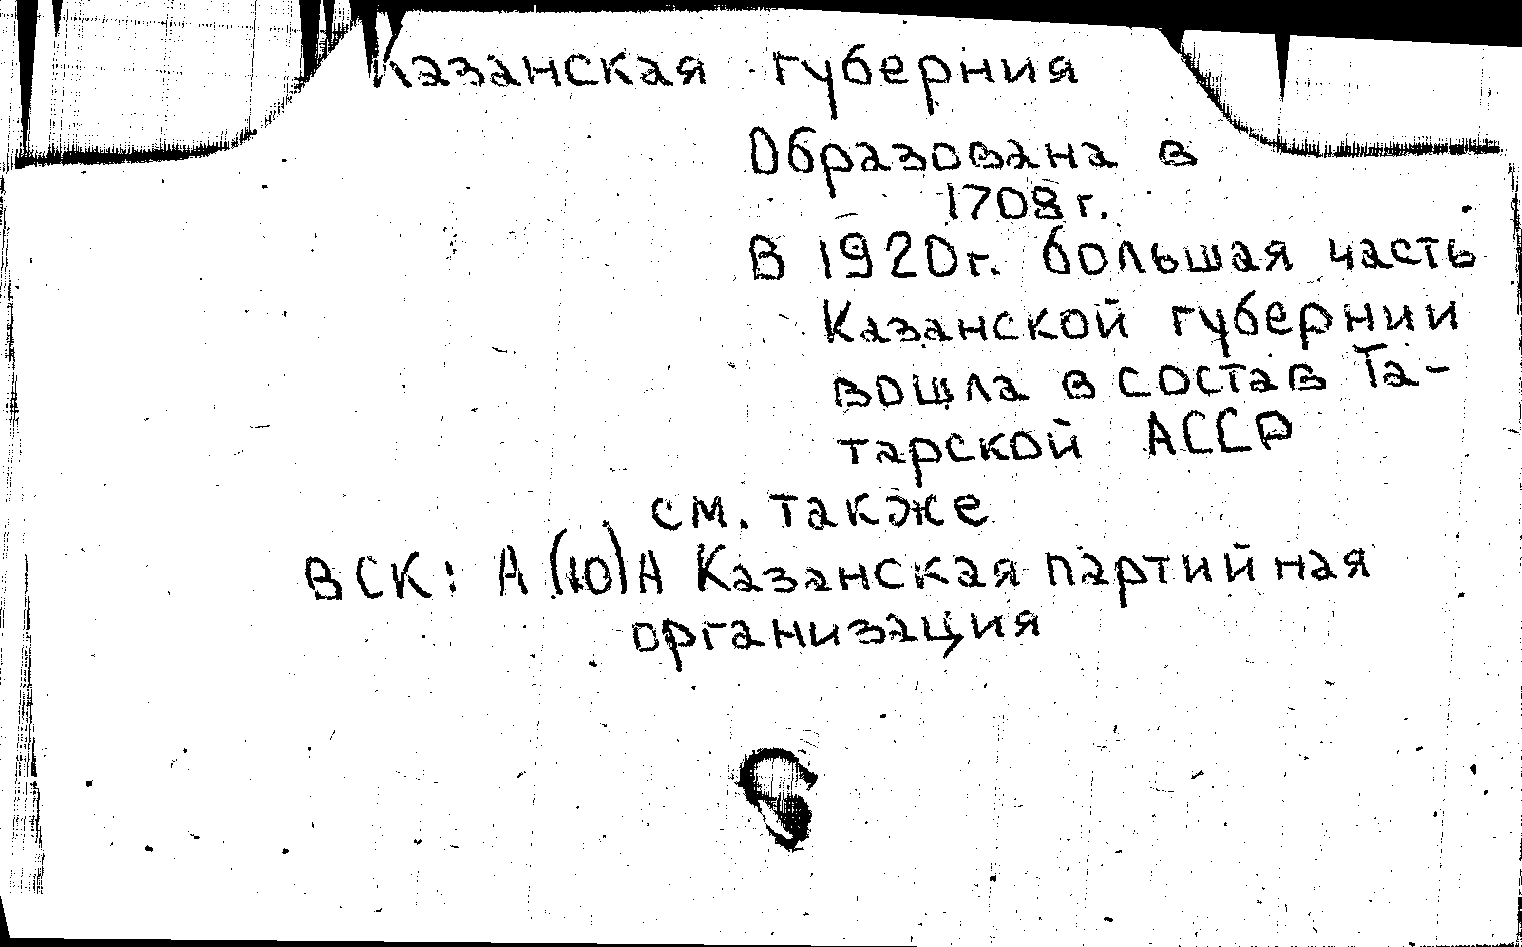 Казанская губерния
Образована в
1708 г.
В 1920 г. большая часть
Казанской губернии
вошла в состав Та-
тарской АССР
см. также
ВСК: А(Ю)А Казанская партийная
организация